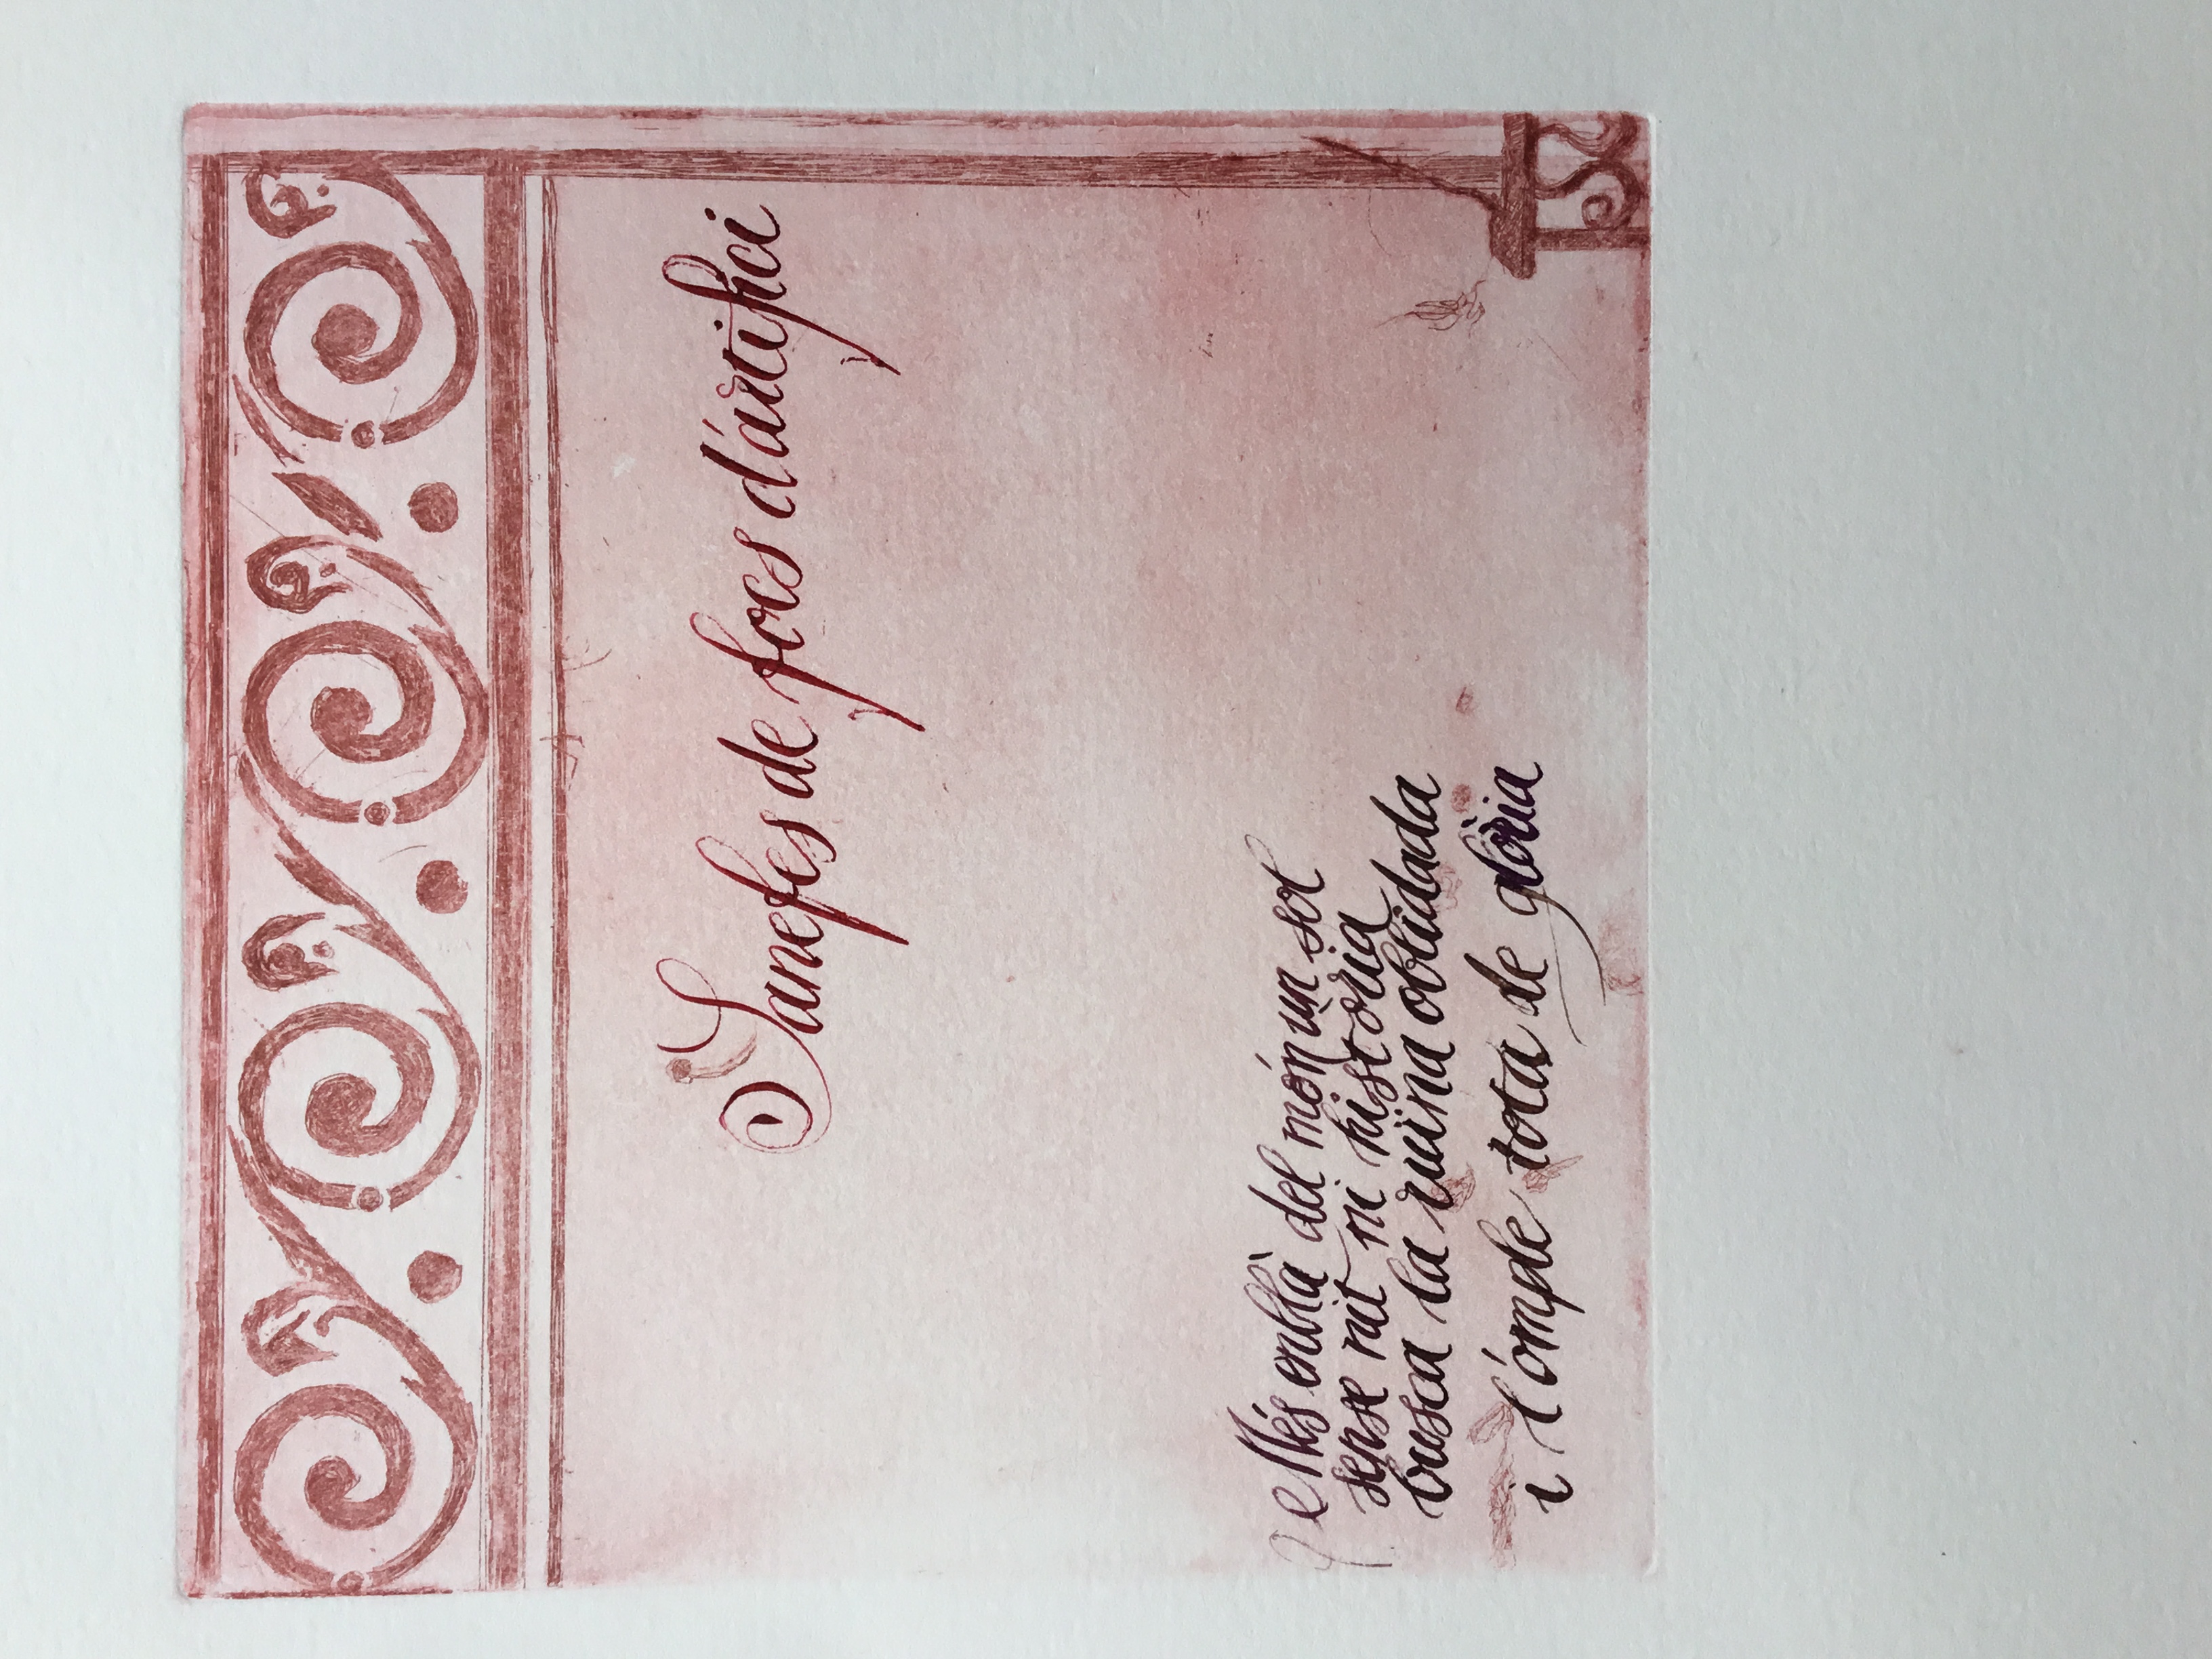 Sanefes de focs d'artifici
Més enllà del món un sol
sense nit ni història
busca la ruina oblidada
i l'omple tota de glòria